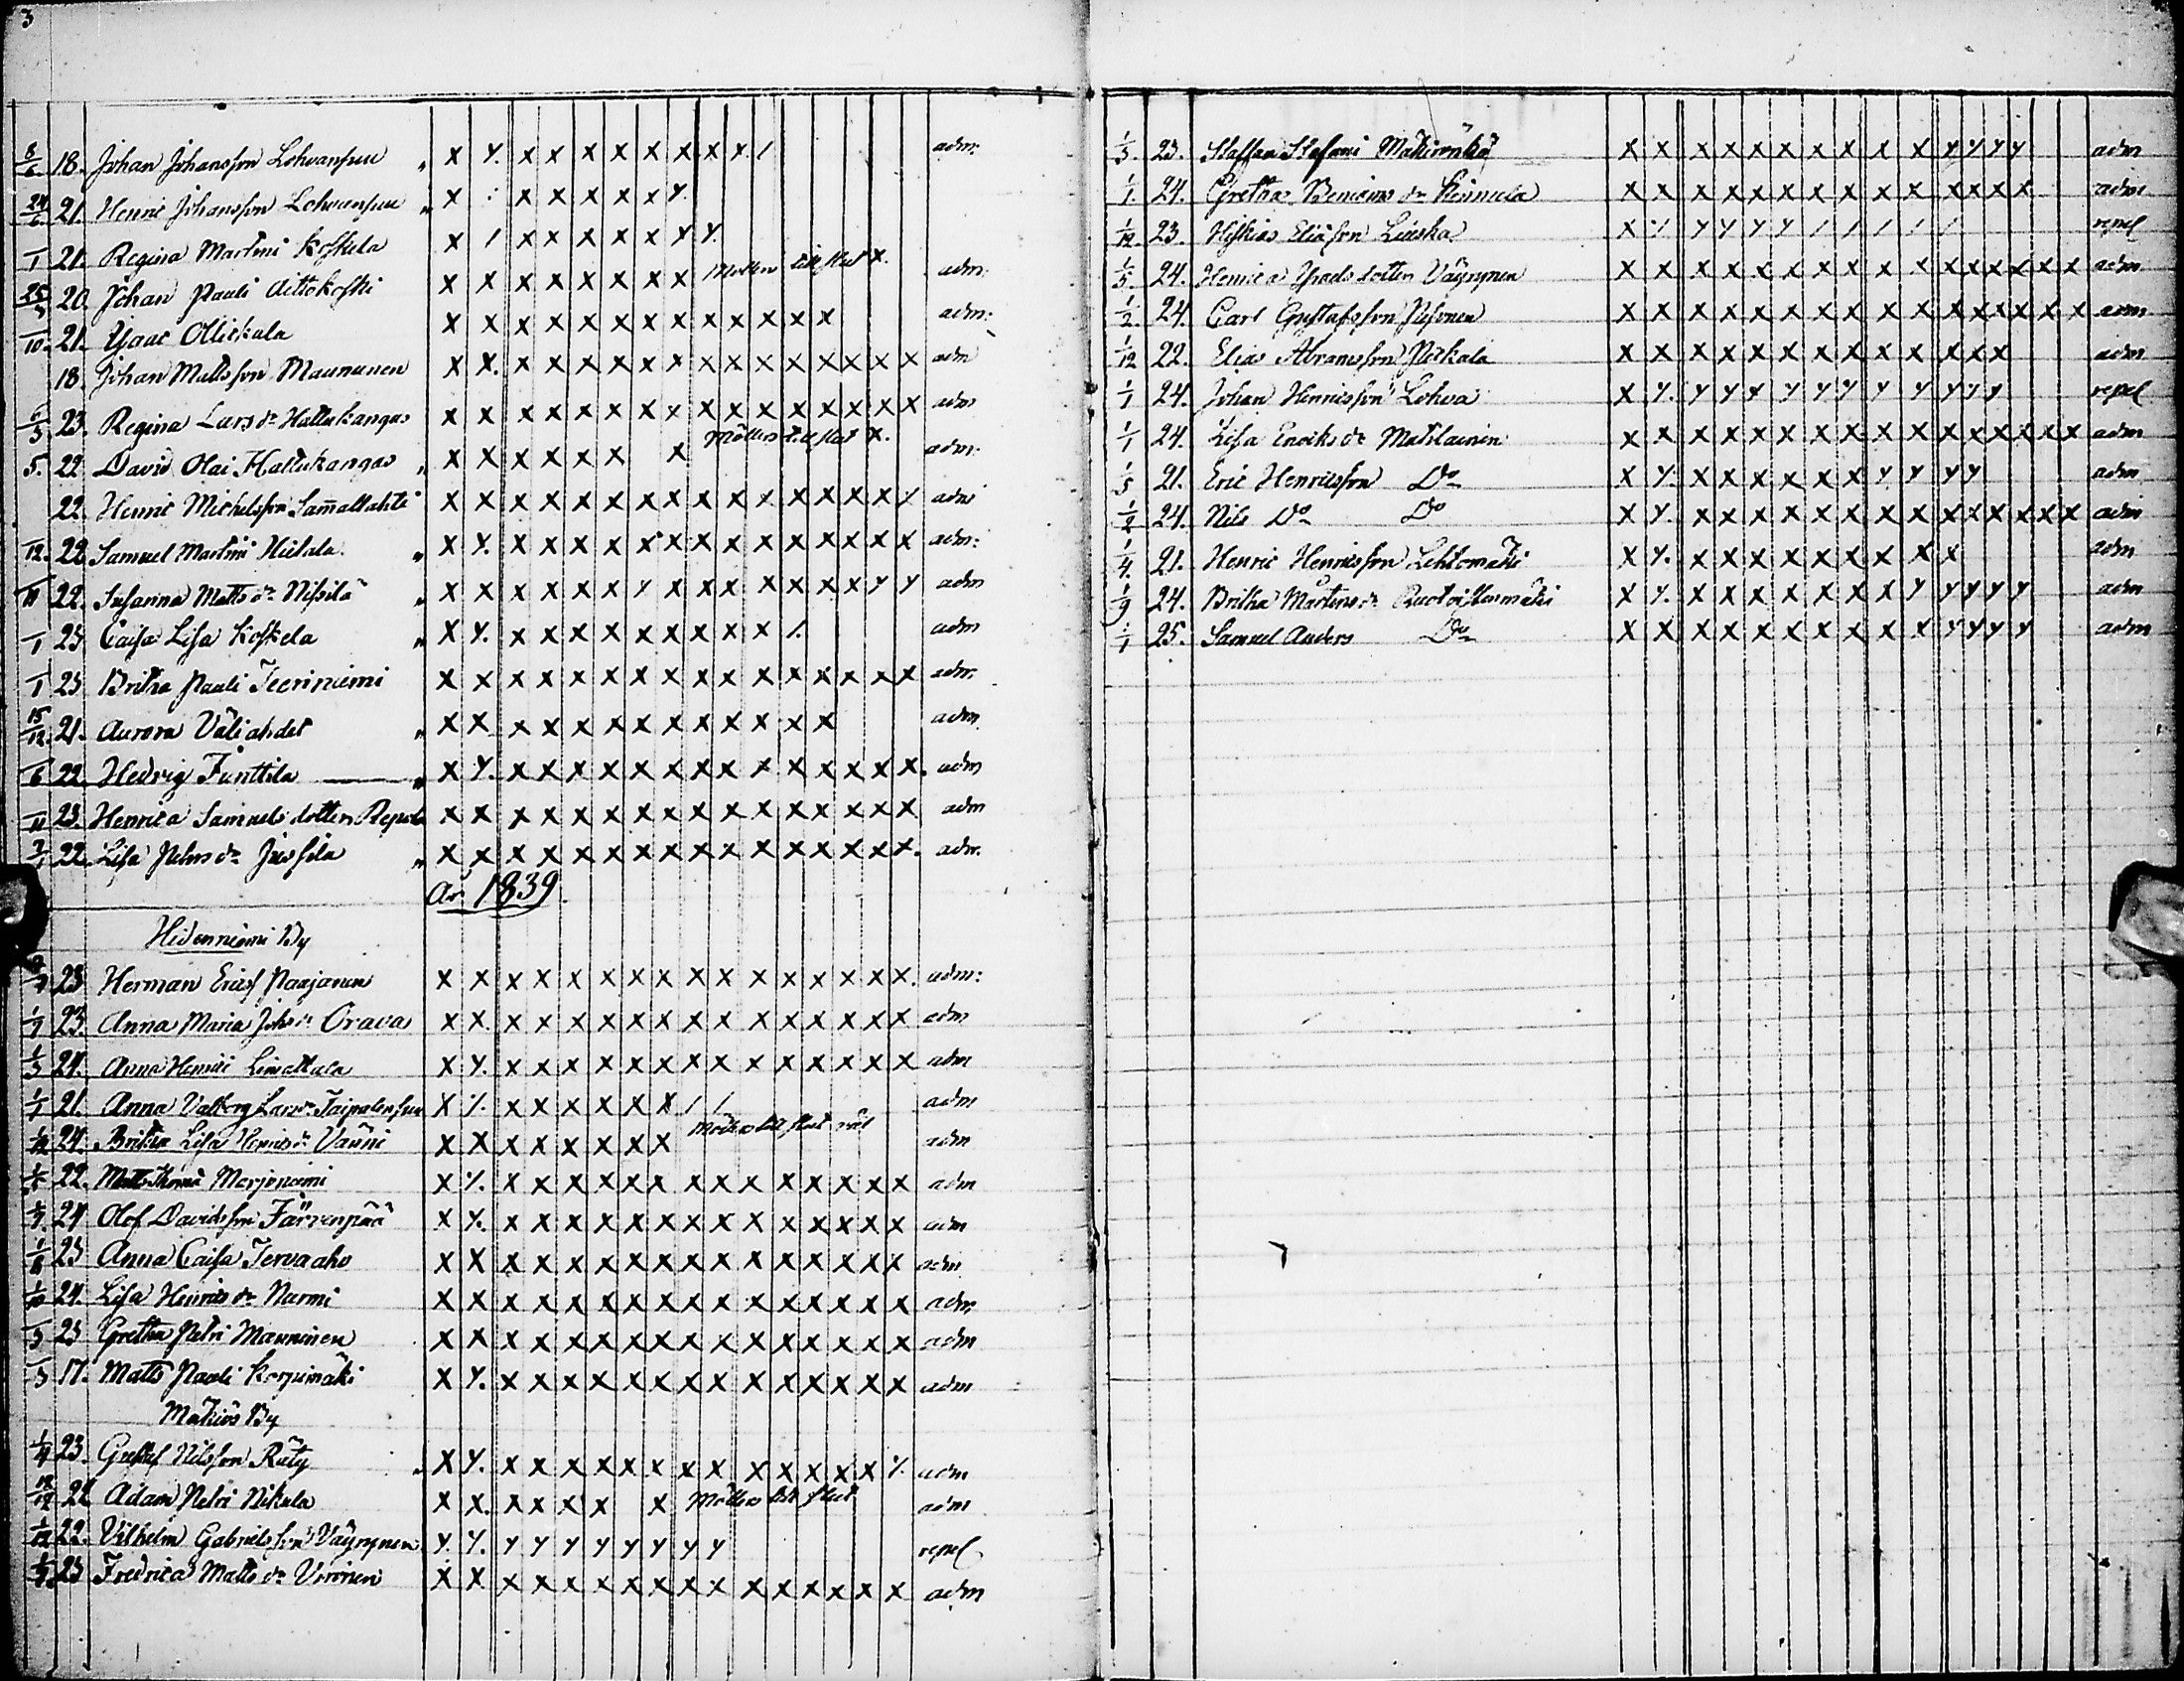 3
8/6 18. Johan Johansson Lohvansuu „ X Y. X X X X X X X X / adm:
24/6 21. Henric Johansson Lohvansuu „ X : X X X X X Y.
/1 21. Regina Martini Koskela X / X X X X X Y Y.
25/ 20. Johan Pauli Aittokoski X X X X X X X X Möllers till slut X. adm:
/10. 21. Isaac Ollickala X X X X X X X X X X X X X adm:
18. Johan Mattsson Maununen X X. X X X X X X X X X X X X X X adm
/3 23. Regina Lars dr Hallukangas X X X X X X X X X X X X X X X X adm
5. 22. David Olai Hallukangas „ X X X X X X X Möllers till slut X. adm:
22. Henric Michelsson Samallahti X X X X X X X X X X X X X X X / adm
/12. 22. Samuel Martini Hietala „ X Y. X X X X X X X X X X X X X X adm:
/11 22. Susanna Matts dr Nissilä „ X X X X X X / X X X X X X X Y Y adm
/1 23 Caisa Lisa Koskela „ X Y. X X X X X X X X X /. adm
/1 23 Britha Pauli Teeriniemi X X X X X X X X X X X X X X X X adm.
15/12. 21. Aurora Väliahdet „ X X X X X X X X X X X X X adm
/6 22. Hedvig Junttila „ X Y. X X X X X X X X X X X X X X. adm
/11 23. Henrica Samuels dotter Repola X X X X X X X X X X X X X X X X adm
7/1 22. Lisa Pehrs dr Jussila „ X X X X X X X X X X X X X X X X. adm.
År 1839.
Hidenniemi By
23 Herman Erics Paajanen X X X X X X X X X X X X X X X X. adm:
1/9 23. Anna Maria Johs dr Orava X X X X X X X X X X X X X X X X adm
1/3 24. Anna Henrici Liimattala X Y. X X X X X X X X X X X X X X adm
1/1 21. Anna Valborg Lars dr Taipalensuu X /. X X X X X X / / adm
1/12 24. Britha Lisa Henrics dr Vänni X X X X X X X X Möllers till slut adm
22. Matts Thomæ Marjoniemi X /. X X X X X X X X X X X X X X adm
24 Olof Davidsson Järvenpää X Y. X X X X X X X X X X X X X X adm
1/8 23 Anna Caisa Tervaaho X X X X X X X X X X X X X X X X adm.
1/10 24. Lisa Henrics dr Nurmi X X X X X X X X X X X X X X X X adm
/3 23 Gretha Petri Manninen X X X X X X X X X X X X X X X X adm
/3 17. Matts Pauli Korpimäki X Y. X X X X X X X X X X X X X X adm
Matinö By
1/4 23. Gustaf Nilsson Räty „ X Y. X X X X X X X X X X X X X /. adm
18/12 22 Adam Petri Nikula X X. X X X X X Möllers till slut adm
1/12 22. Vilhelm Gabrielsson Väyrynen Y. Y. Y Y Y Y Y Y Y Y repel
23 Fredrica Matts dr Voronen X X X X X X X X X X X X X X X X adm
1/3. 23. Staffan Stefani X X X X X X X X X X Y Y Y Y adm
1/1. 24. Gretha Benjams dr Keinula X X X X X X X X X X X X X X adm
1/12. 23. Hiskias Eliasson Liuska X ·/. Y Y Y Y / / / / / repel
1/5. 24. Henrica Isacs dotter Väyrynen X X X X X X X X X X X X X X X X adm
1/2. 24. Carl Gustafsson X X X X X X X X X X X X X X X X adm
1/12 22. Elias Abramsson Pickala X X X X X X X X X X X X X adm
1/1 24. Johan Henricsson Lohva X Y. Y Y Y Y Y Y Y Y Y Y Y repel
1/1 24. Lisa Enoiks dr Matilainen X X X X X X X X X X X X X X X X adm
1/5 21. Eric Henricsson Do X Y. X X X X X X Y Y Y Y adm
1/2 24. Nils Do Do X Y. X X X X X X X X X X X X X X adm
1/4. 21. Henric Henricsson Lehtomäki X Y. X X X X X X X X X adm
1/9 24. Britha Mårtens dr Ruotoistenmäki X Y. X X X X X X X Y Y Y Y Y adm
1/1 25. Samuel Anders Do X X X X X X X X X X Y Y Y Y adm